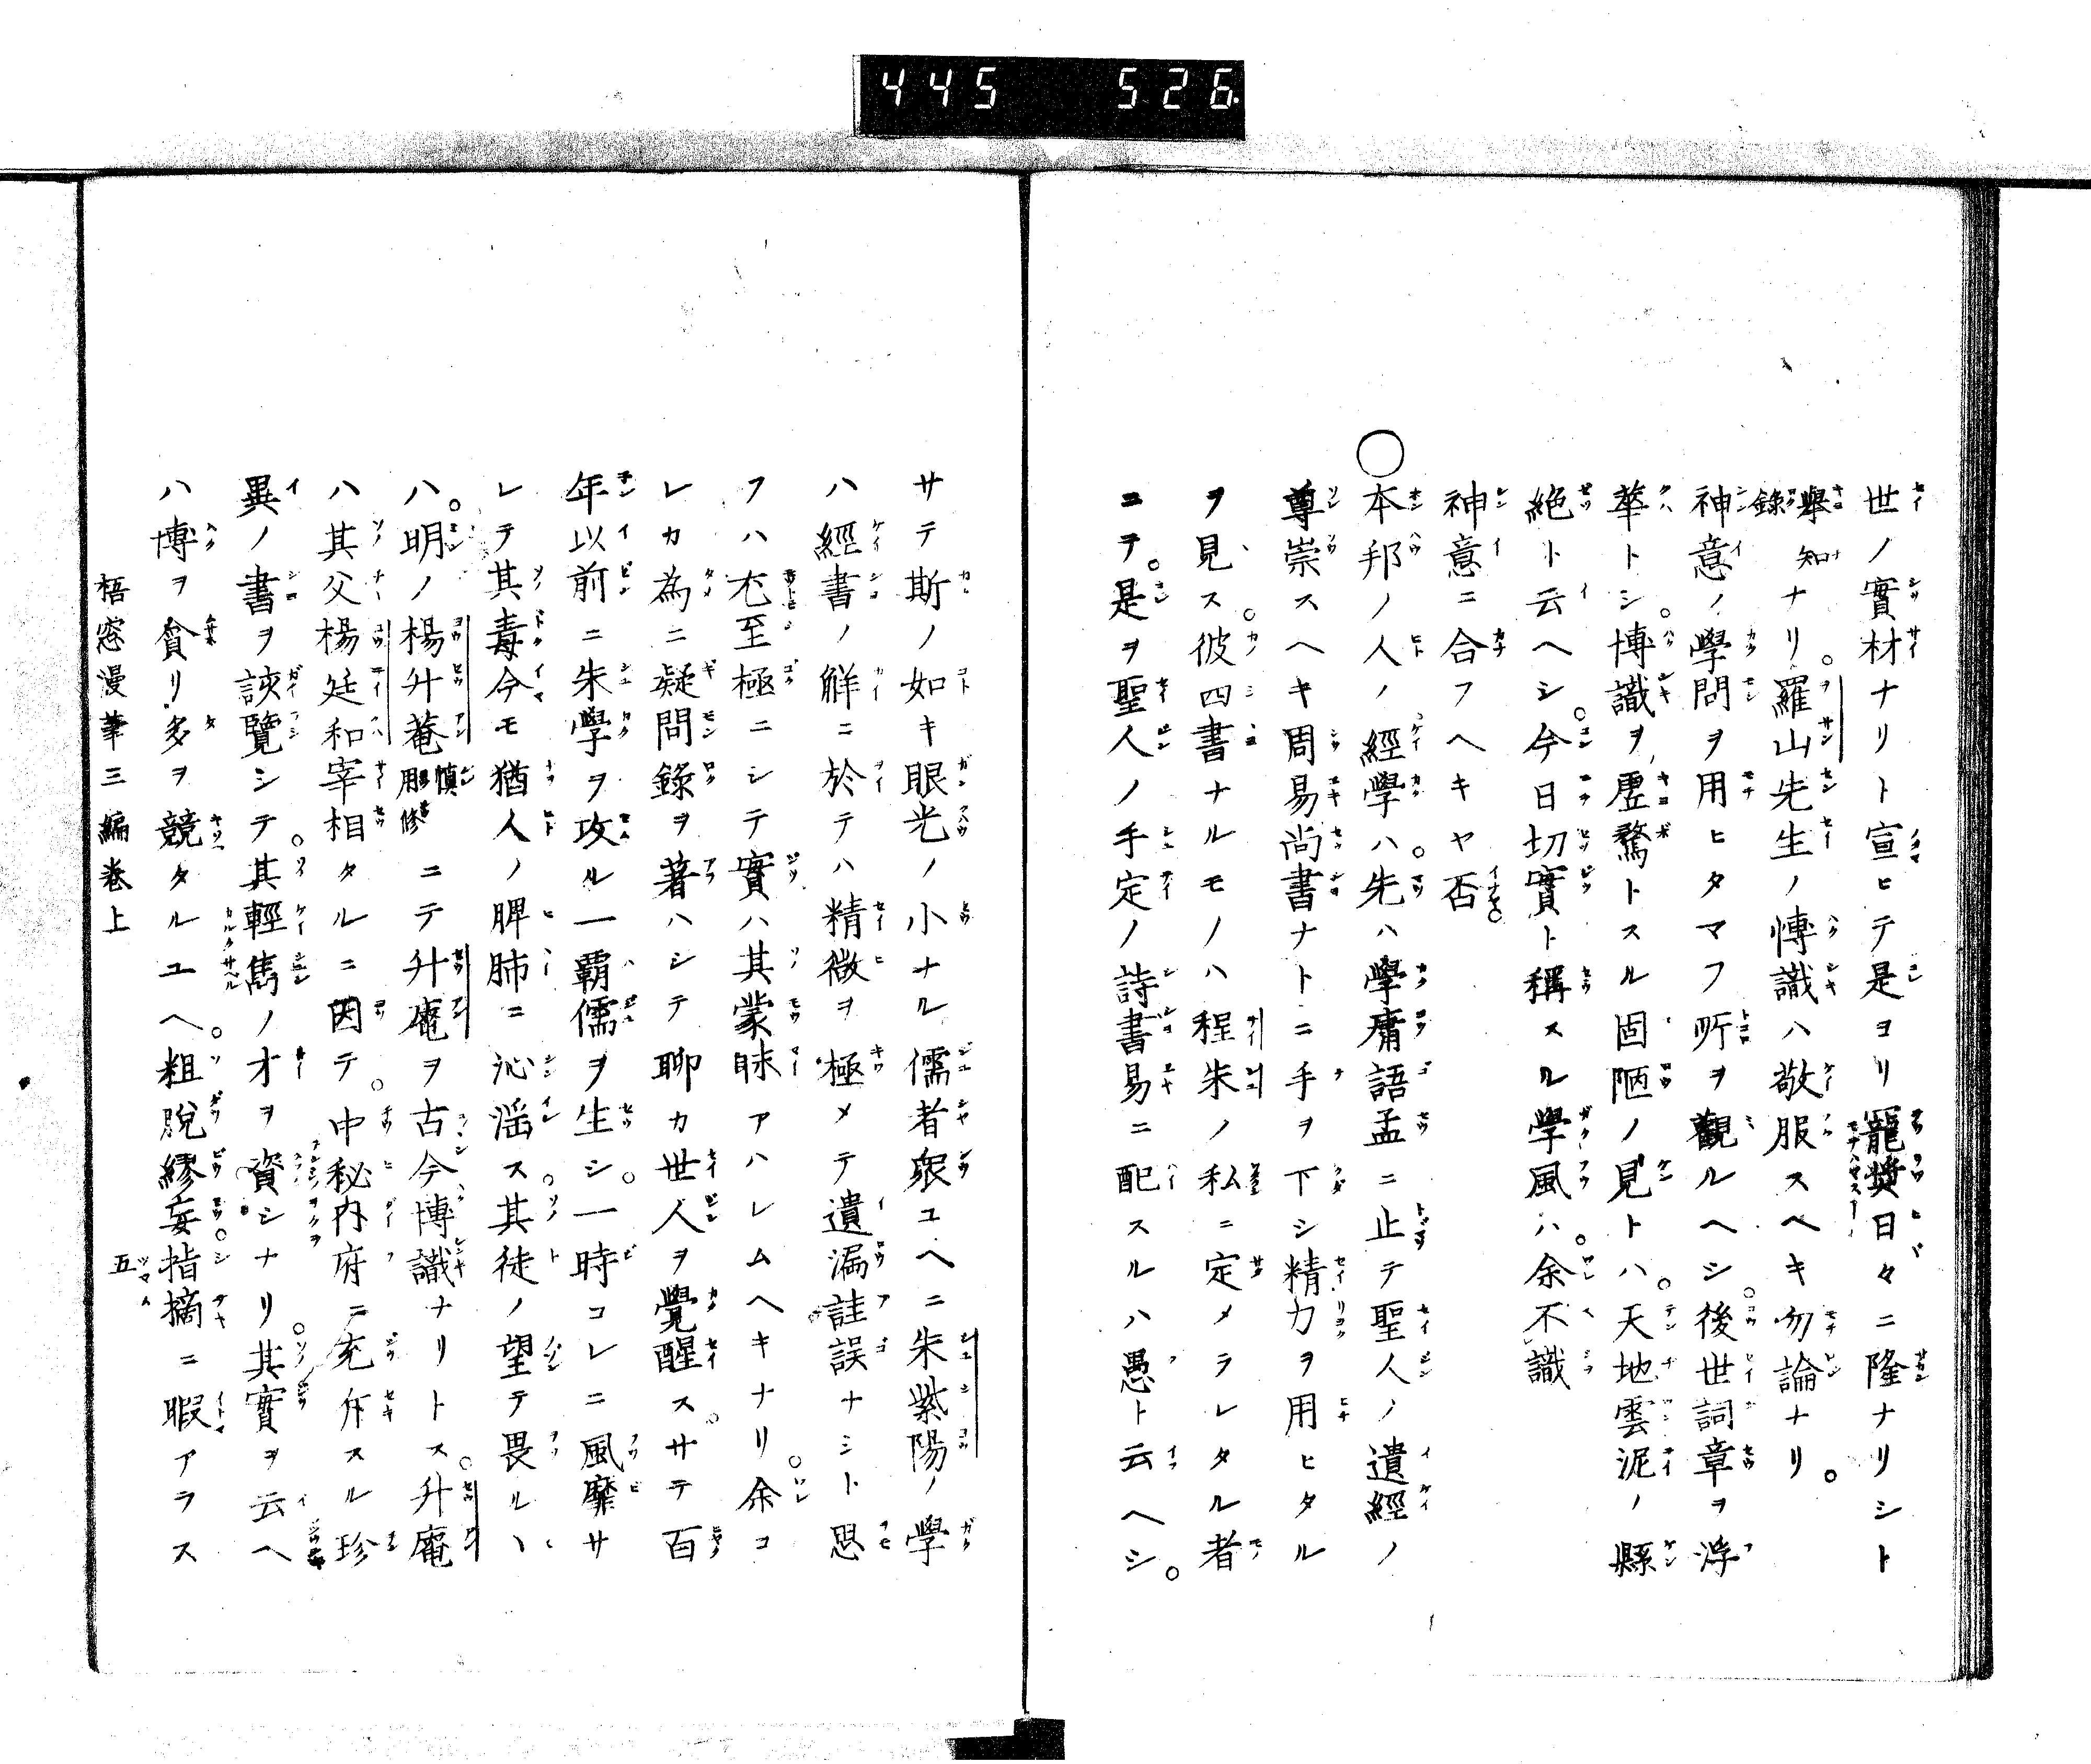 445 526
世ノ實材ナリト宣ヒテ是ヨリ寵奬日々ニ隆ナリシト
擧知錄ナリ。羅山先生ノ愽識ハ敬服スベキ勿論ナリ。
神意ノ學問ヲ用ヒタマフ所ヲ觀ルヘシ。後世詞章ヲ浮
華トシ。博識ヲ虛騖トスル固陋ノ見トハ。天地雲泥ノ縣
絶ト云ヘシ。今日切實ト稱スル學風ハ。余不識
神意ニ合フヘキヤ否。
〇本邦ノ人ノ經學ハ。先ハ學庸語孟ニ止テ聖人ノ遺經ノ
尊崇スヘキ周易尚書ナトニ手ヲ下シ精力ヲ用ヒタル
ヲ見ス。彼四書ナルモノハ程朱ノ私ニ定メラレタル者
ニテ。是ヲ聖人ノ手定ノ詩書易ニ配スルハ愚ト云ヘシ。
サテ斯ノ如キ眼光ノ小ナル儒者衆ユヘニ朱紫陽ノ學
ハ經書ノ觧ニ於テハ精微ヲ極メテ遺漏詿誤ナシト思
フハ尤至極ニシテ實ハ其蒙眛アハレムヘキナリ。余コ
レカ為ニ疑問錄ヲ著ハシテ聊カ世人ヲ覺醒ス。サテ百
年以前ニ朱學ヲ攻ル一覇儒ヲ生シ。一時コレニ風靡サ
レテ其毒今モ猶人ノ脾肺ニ沁滛ス。其徒ノ望テ畏ルヽ
ハ。明ノ楊升菴慎用修ニテ升庵ヲ古今博識ナリトス。升庵
ハ其父楊廷和宰相タルニ因テ。中秘内府ニ充斥スル珍
異ノ書ヲ該覽シテ。其輕雋ノ才ヲ資シナリ。其實ヲ云ヘ
ハ博ヲ貪リ多ヲ競タルユヘ。粗脫繆妄。指摘ニ暇アラス
梧窓漫筆三編卷上 五